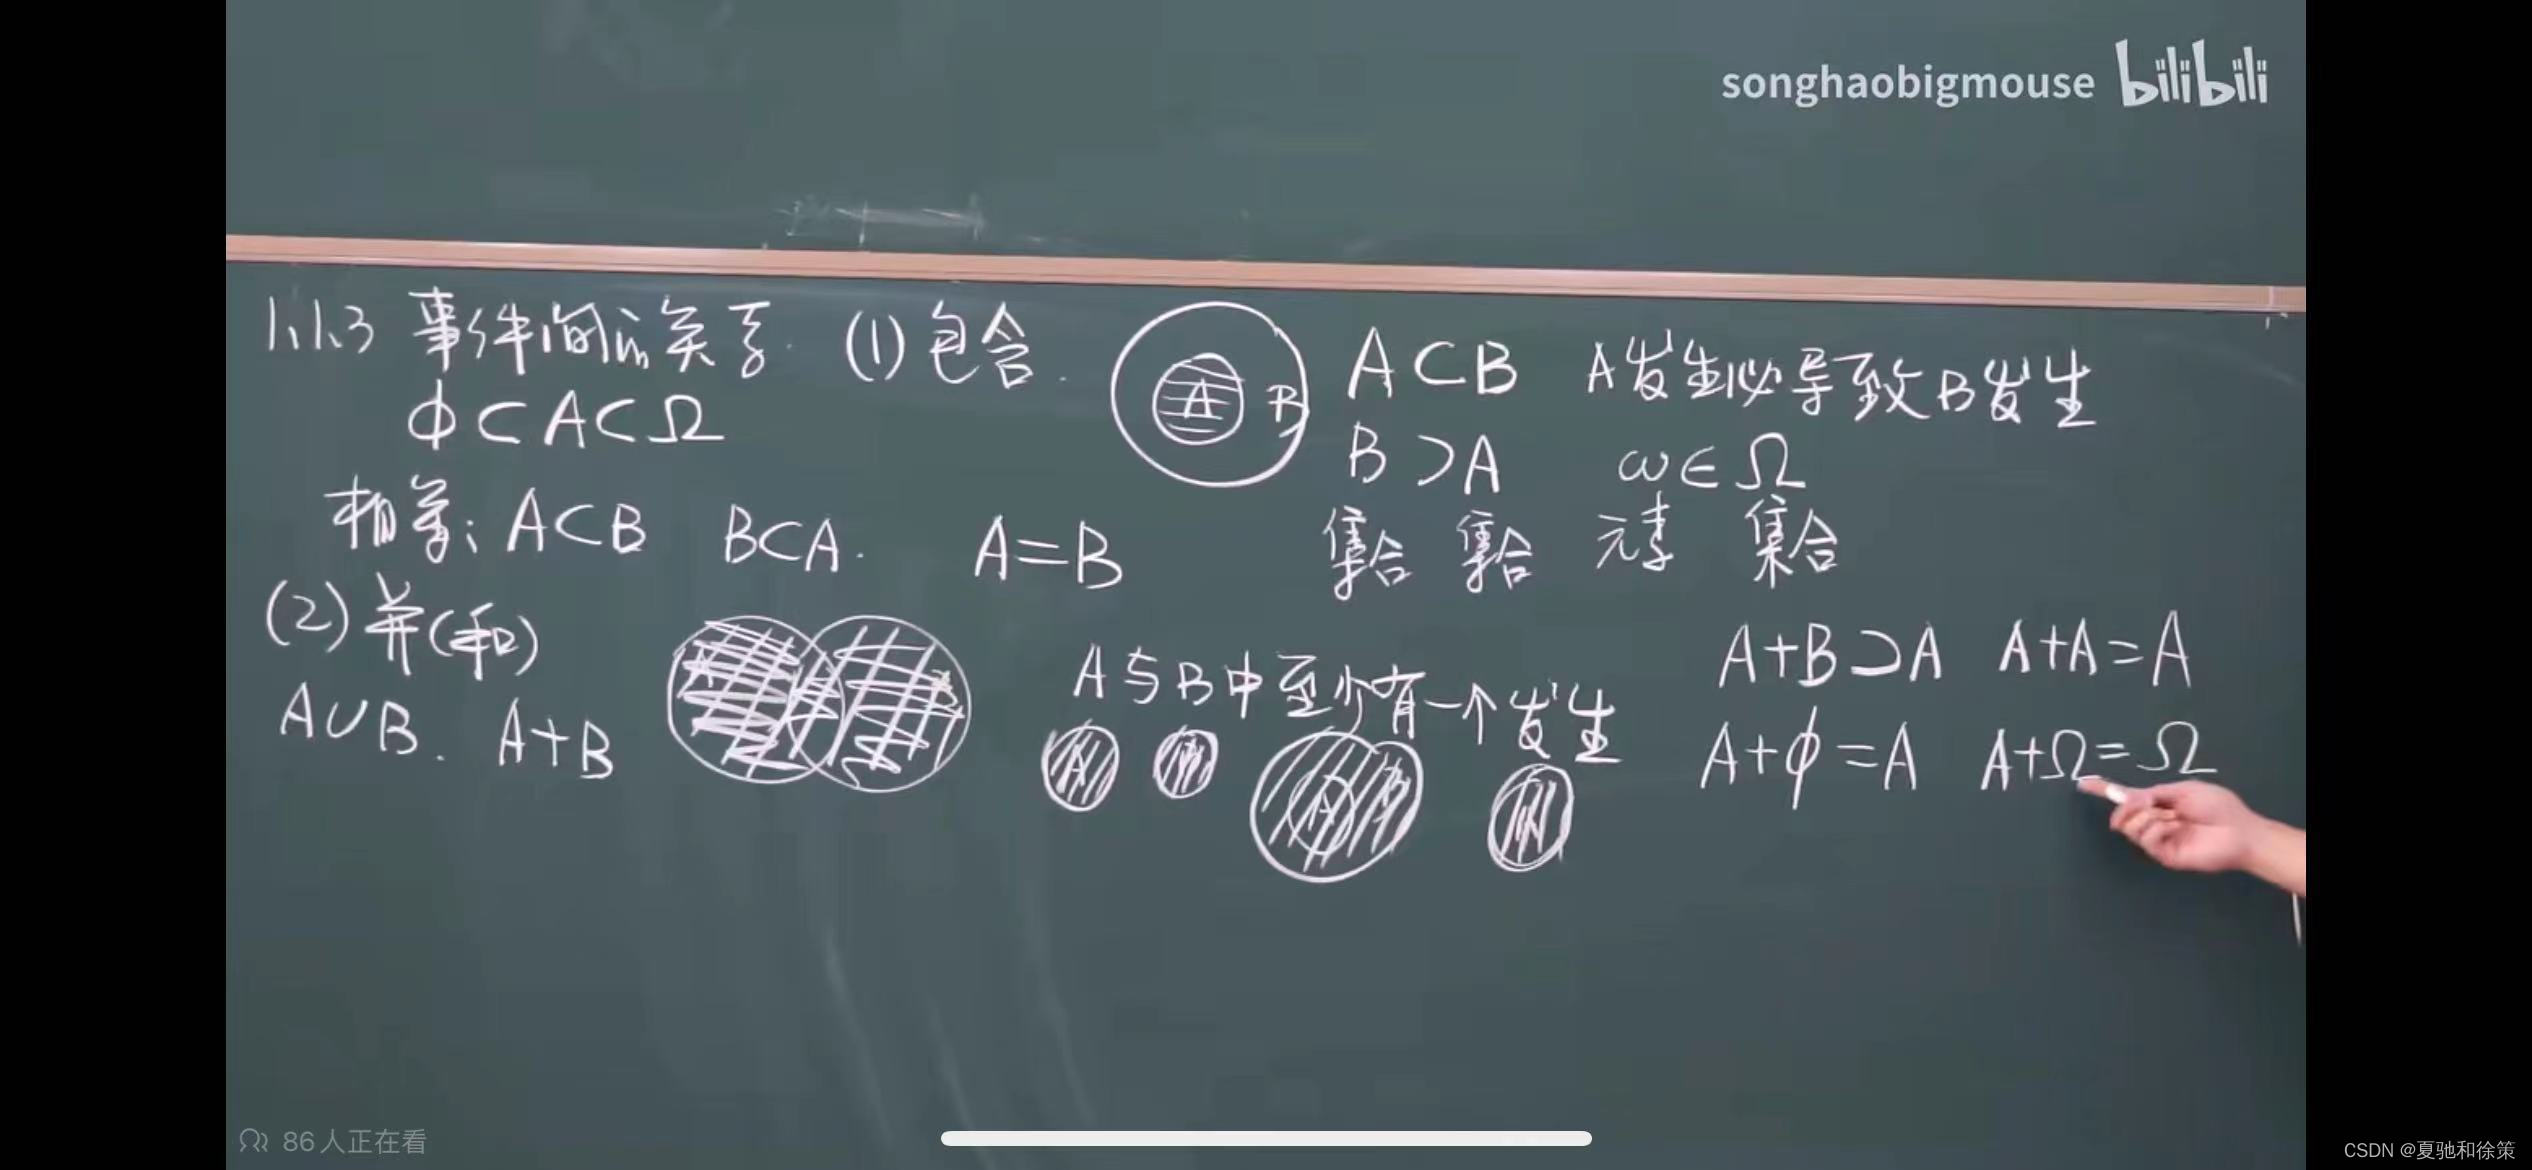 songhaobigmouse bilibili
1.1.3 事件间的关系. (1) 包含.
A B
A⊂B A发生必导致B发生
ϕ⊂A⊂Ω
B⊃A ω∈Ω
集合 集合 元素 集合
相等: A⊂B B⊂A. A=B
(2) 并(和)
A∪B. A+B
A B
A与B中至少有一个发生
A
A
A+B⊃A A+A=A
A+ϕ=A A+Ω=Ω
86人正在看
CSDN @夏驰和徐策